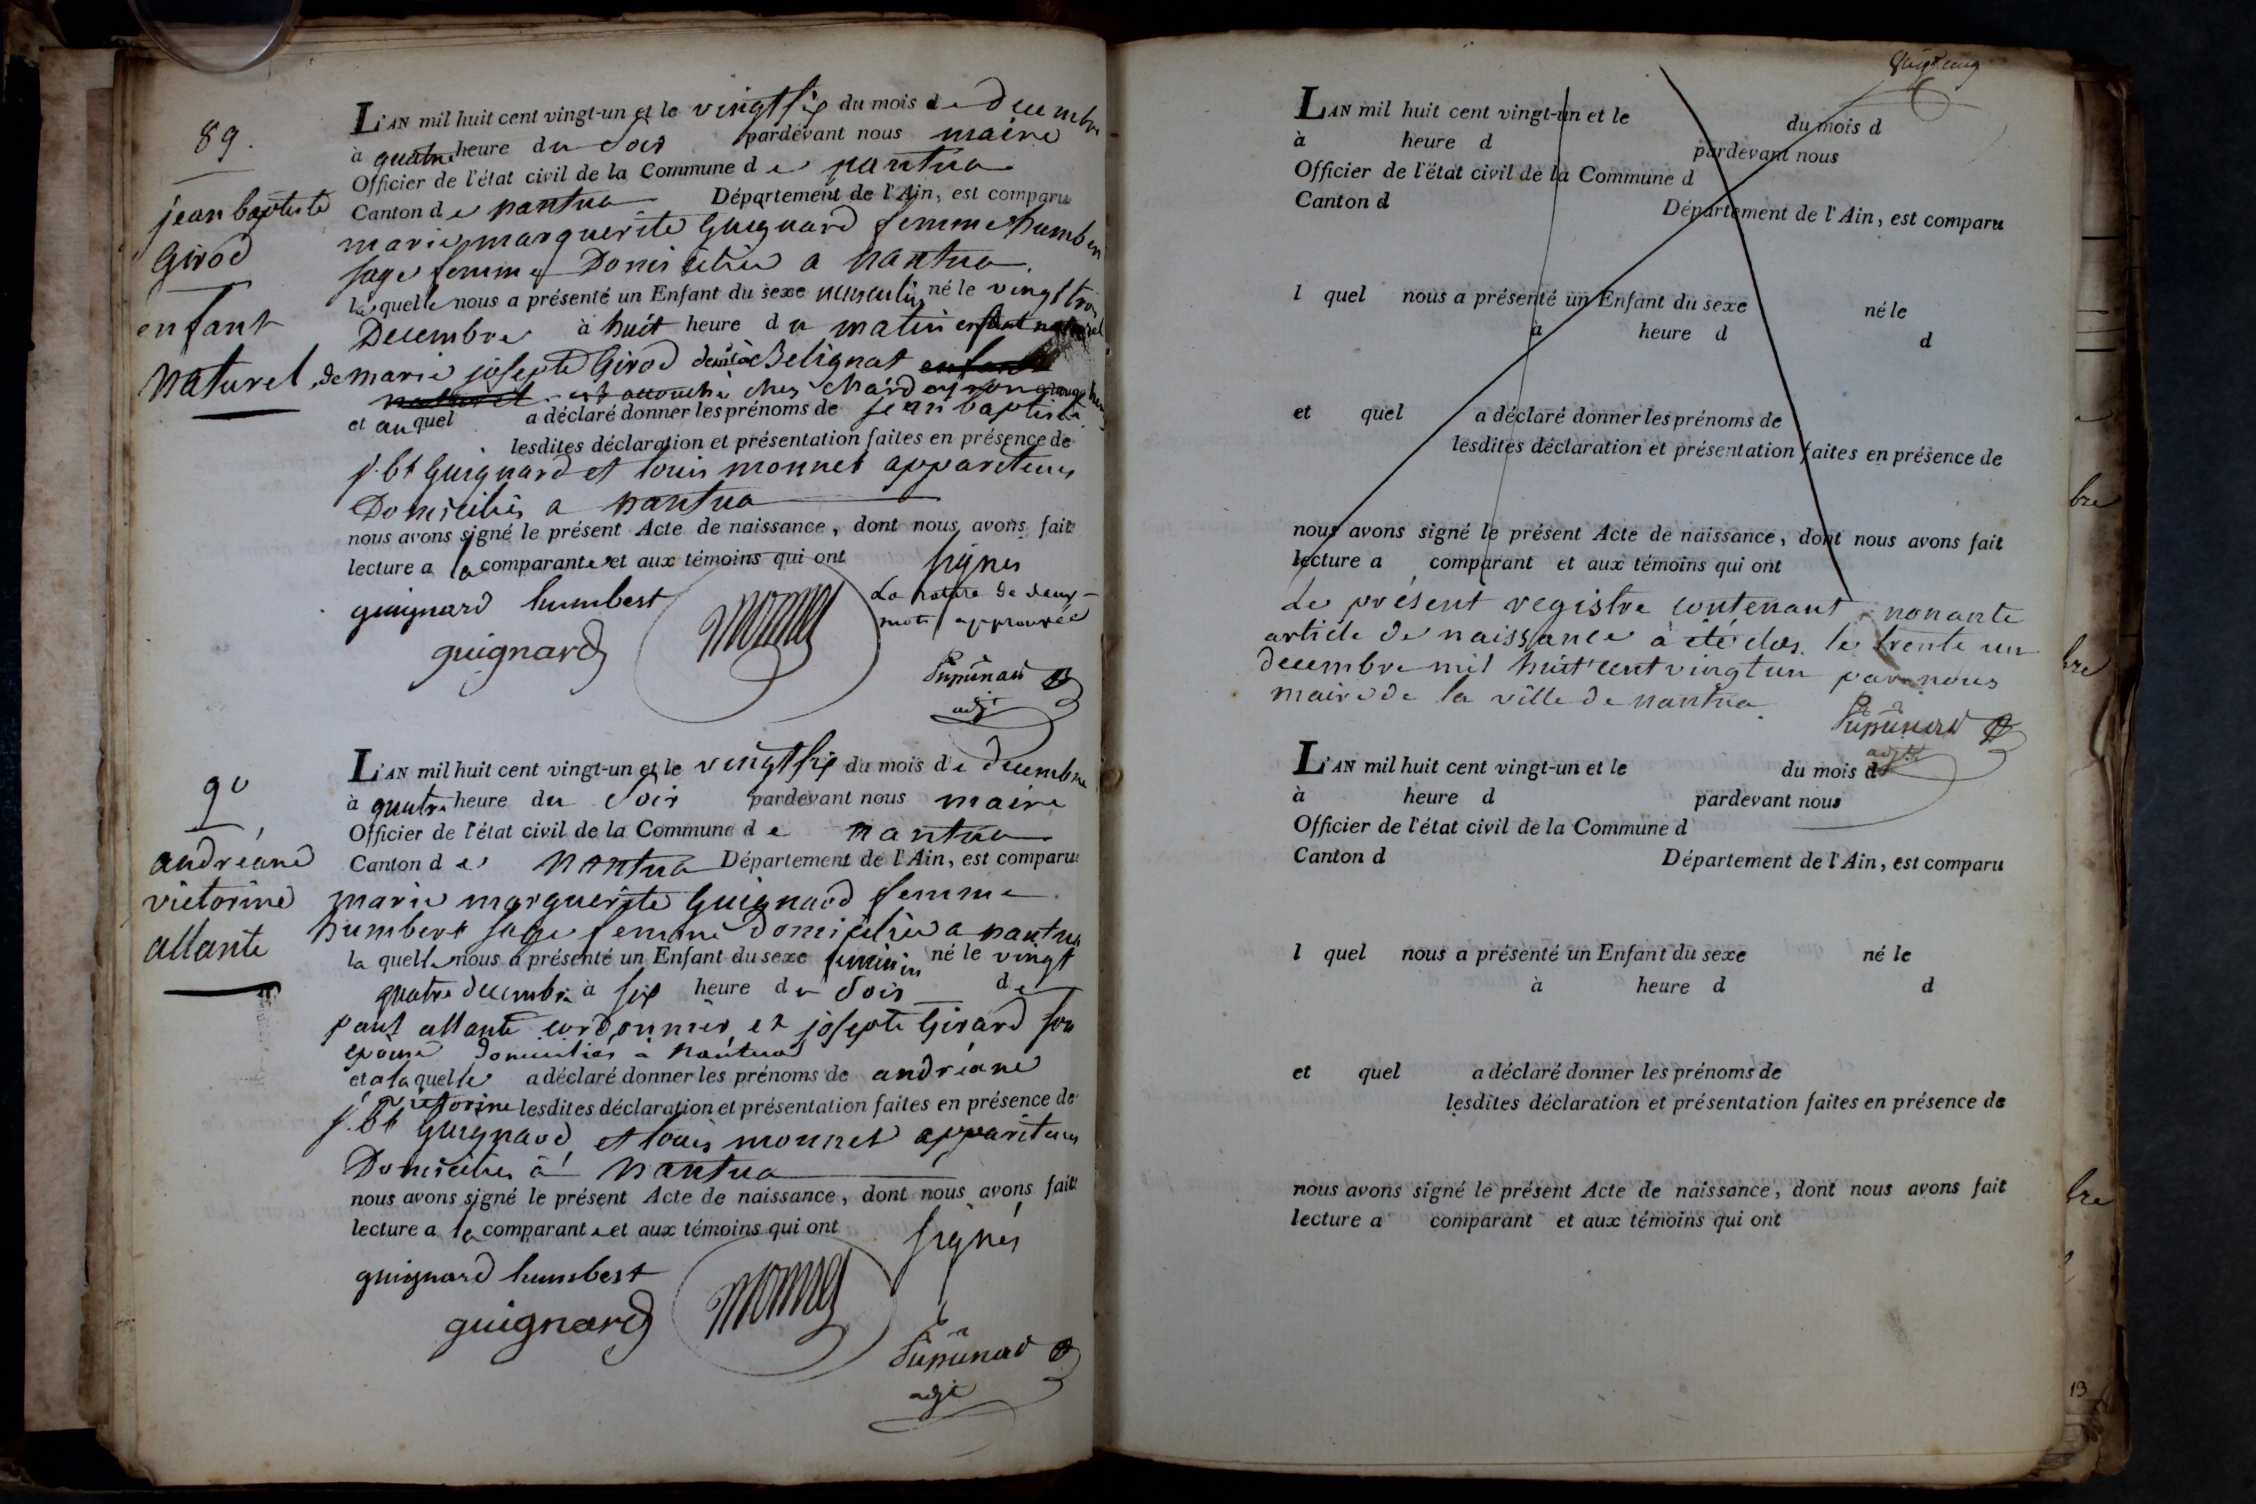 89.
jean baptiste
Girod
enfant
naturel
L'AN mil huit cent vingt-un et le vingt six du mois de decembre
à quatre heure du Soir pardevant nous maire
Officier de l'état civil de la Commune de nantua
Canton de nantua Département de l'Ain, est comparu
marie marguerite Guignard femme humbert
sage femme Domiciliée a nantua.
la quelle nous a présenté un Enfant du sexe masculin né le vingt trois
Decembre à huit heure du matin enfant naturel
de marie josepte Girod de Belignat enfant
naturel est accouchée chez
et au quel a déclaré donner les prénoms de jean baptiste
lesdites déclaration et présentation faites en présence de
j. bt Guignard et louis monnet appariteurs
Domiciliés a nantua
nous avons signé le présent Acte de naissance, dont nous avons fait
lecture a la comparante et aux témoins qui ont signés
guignard humbert
La rature de deux
mots approuvée
guignard
monnet
adjt
90
andréane
victorine
allante
L'AN mil huit cent vingt-un et le vingt six du mois de decembre
à quatre heure du Soir pardevant nous maire
Officier de l'état civil de la Commune de nantua
Canton de nantua Département de l'Ain, est comparu
marie marguerite Guignard femme
humbert sage femme domiciliée a nantua
la quelle nous a présenté un Enfant du sexe feminin né le vingt
quatre decembre à six heure du Soir de
paul allante cordonnier et josepte Girard son
epouse domiciliés à nantua
et a la quelle a déclaré donner les prénoms de andréane
victorine lesdites déclaration et présentation faites en présence de
j. bt Guignard et louis monnet appariteurs
Domiciliés à nantua
nous avons signé le présent Acte de naissance, dont nous avons fait
lecture a la comparante et aux témoins qui ont signés
guignard humbert
guignard
monnet
adjt
L'AN mil huit cent vingt-un et le du mois d
à heure d pardevant nous
Officier de l'état civil de la Commune d
Canton d Département de l'Ain, est comparu
l quel nous a présenté un Enfant du sexe né le
à heure d d
et quel a déclaré donner les prénoms de
lesdites déclaration et présentation faites en présence de
nous avons signé le présent Acte de naissance, dont nous avons fait
lecture a comparant et aux témoins qui ont
Le présent registre contenant nonante
article de naissance à été clos le trente un
decembre mil huit cent vingt un par nous
maire de la ville de nantua
adjt
L'AN mil huit cent vingt-un et le du mois d
à heure d pardevant nous
Officier de l'état civil de la Commune d
Canton d Département de l'Ain, est comparu
l quel nous a présenté un Enfant du sexe né le
à heure d d
et quel a déclaré donner les prénoms de
lesdites déclaration et présentation faites en présence de
nous avons signé le présent Acte de naissance, dont nous avons fait
lecture a comparant et aux témoins qui ont
bre
bre
bre
13